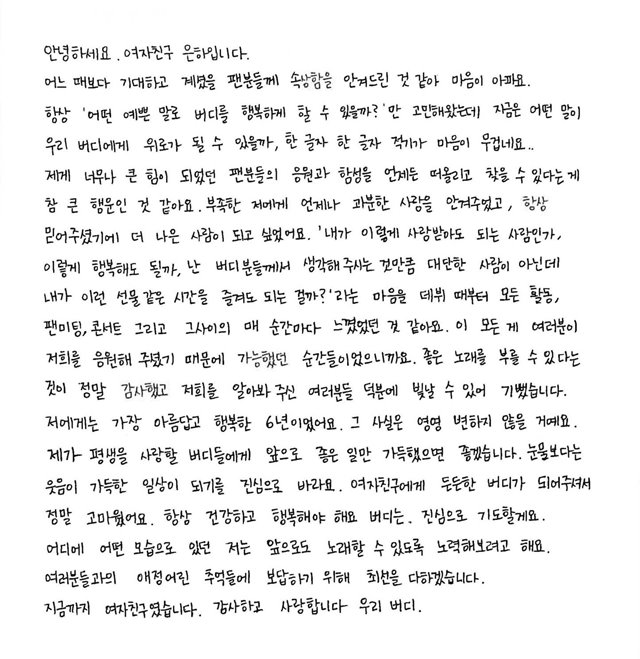 안녕하세요. 여자친구 은하입니다.
어느 때보다 기대하고 계셨을 팬분들께 속상함을 안겨드린 것 같아 마음이 아파요.
항상 '어떤 예쁜 말로 버디를 행복하게 할 수 있을까?'만 고민해왔는데 지금은 어떤 말이
우리 버디에게 위로가 될 수 있을까, 한 글자 한 글자 적기가 마음이 무겁네요..
제게 너무나 큰 힘이 되었던 팬분들의 응원과 함성을 언제든 떠올리고 찾을 수 있다는게
참 큰 행운인 것 같아요. 부족한 저에게 언제나 과분한 사랑을 안겨주었고, 항상
믿어주셨기에 더 나은 사람이 되고 싶었어요. '내가 이렇게 사랑받아도 되는 사람인가,
이렇게 행복해도 될까, 난 버디분들께서 생각해 주시는 것만큼 대단한 사람이 아닌데
내가 이런 선물같은 시간을 즐겨도 되는 걸까?'라는 마음을 데뷔 때부터 모든 활동,
팬미팅, 콘서트 그리고 그사이의 매 순간마다 느꼈었던 것 같아요. 이 모든 게 여러분이
저희를 응원해 주셨기 때문에 가능했던 순간들이었으니까요. 좋은 노래를 부를 수 있다는
것이 정말 감사했고 저희를 알아봐 주신 여러분들 덕분에 빛날 수 있어 기뻤습니다.
저에게는 가장 아름답고 행복한 6년이었어요. 그 사실은 영영 변하지 않을 거예요.
제가 평생을 사랑할 버디들에게 앞으로 좋은 일만 가득했으면 좋겠습니다. 눈물보다는
웃음이 가득한 일상이 되기를 진심으로 바라요. 여자친구에게 든든한 버디가 되어주셔서
정말 고마웠어요. 항상 건강하고 행복해야 해요 버디는. 진심으로 기도할게요.
어디에 어떤 모습으로 있던 저는 앞으로도 노래할 수 있도록 노력해보려고 해요.
여러분들과의 애정어린 추억들에 보답하기 위해 최선을 다하겠습니다.
지금까지 여자친구였습니다. 감사하고 사랑합니다 우리 버디.